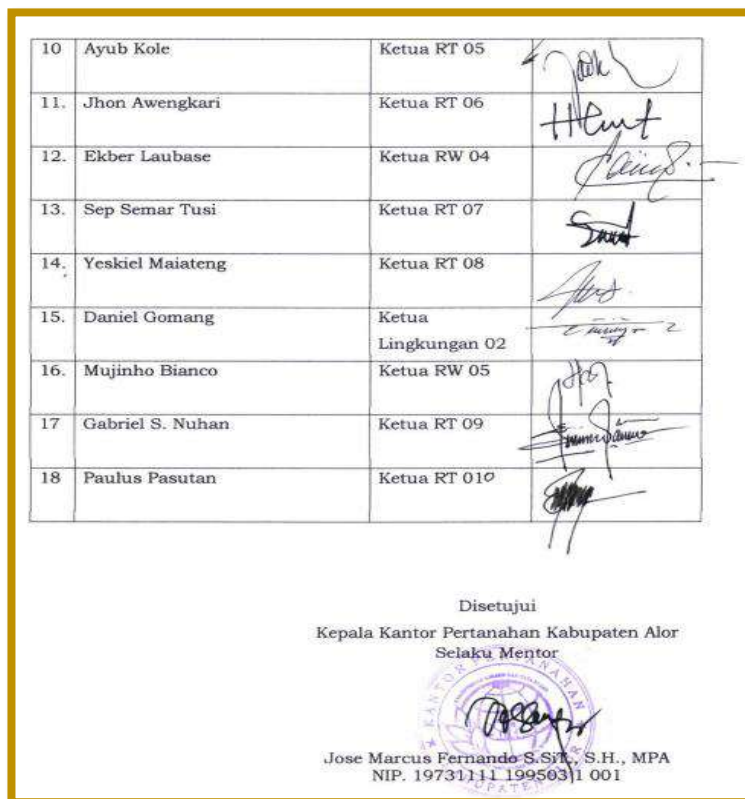 10 Ayub Kole Ketua RT 05
11. Jhon Awengkari Ketua RT 06
12. Ekber Laubase Ketua RW 04
13. Sep Semar Tusi Ketua RT 07
14. Yeskiel Maiateng Ketua RT 08
15. Daniel Gomang Ketua
Lingkungan 02
16. Mujinho Bianco Ketua RW 05
17 Gabriel S. Nuhan Ketua RT 09
18 Paulus Pasutan Ketua RT 010
Disetujui
Kepala Kantor Pertanahan Kabupaten Alor
Selaku Mentor
KANTOR PERTANAHAN
Jose Marcus Fernando S.SiT., S.H., MPA
NIP. 19731111 199503 1 001